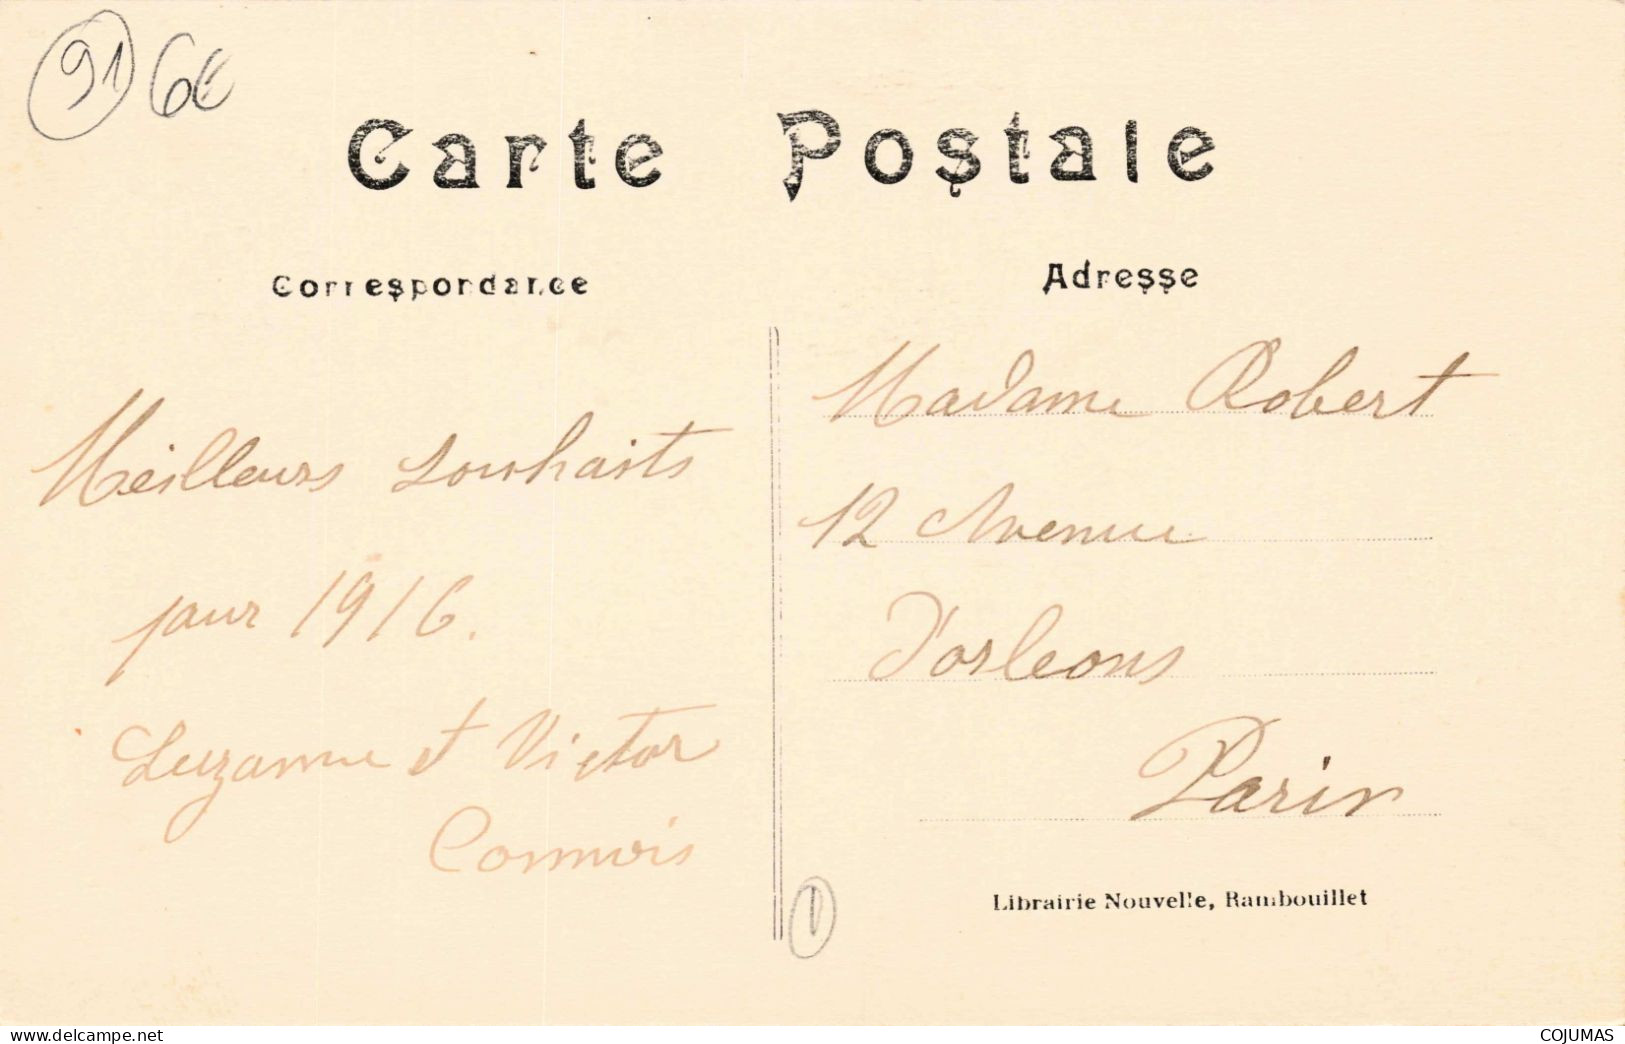 91 6€
Carte Postale
Correspondance
Adresse
Meilleurs souhaits
pour 1916.
Suzanne et Victor
Madame Robert
12 Avenue
D'orleans
Paris
Librairie Nouvelle, Rambouillet
1
www.delcampe.net
COJUMAS